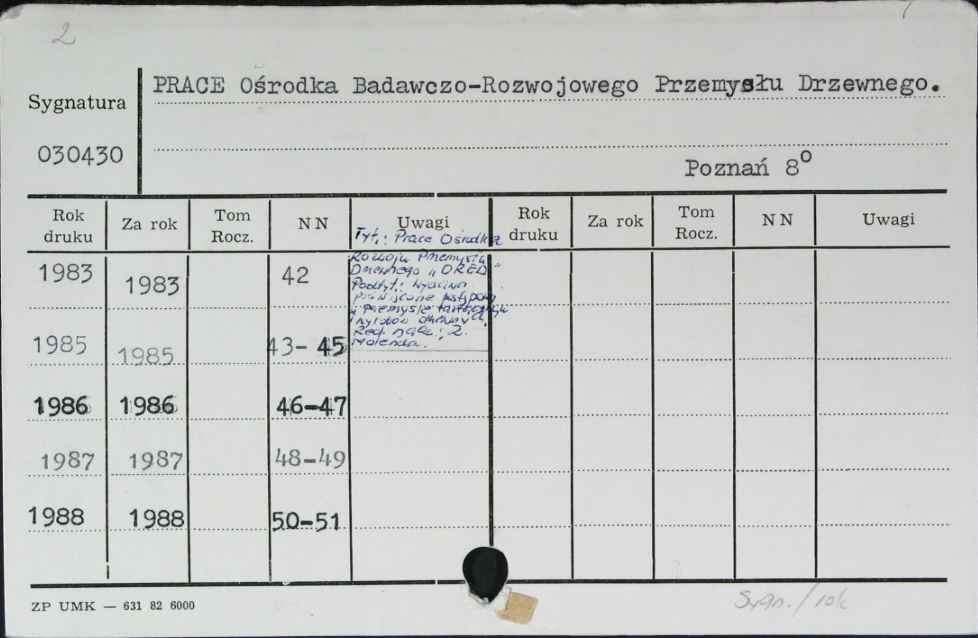 2
PRACE Ośrodka Badawczo-Rozwojowego Przemysłu Drzewnego.
Sygnatura
030430
Poznań 8⁰
Rok druku Za rok Tom Rocz. NN Uwagi Rok druku Za rok Tom Rocz. NN Uwagi
Tyt.: Prace Ośrodka
Rozwoju Przemysłu
Drzewnego „ORED"
Podtyt.:
Red. nacz.: Z.
Molenda.
1983 1983 42
1985 1985 43-45
1986 1986 46-47
1987 1987 48-49
1988 1988 50-51
ZP UMK — 631 82 6000
Sygn./rok